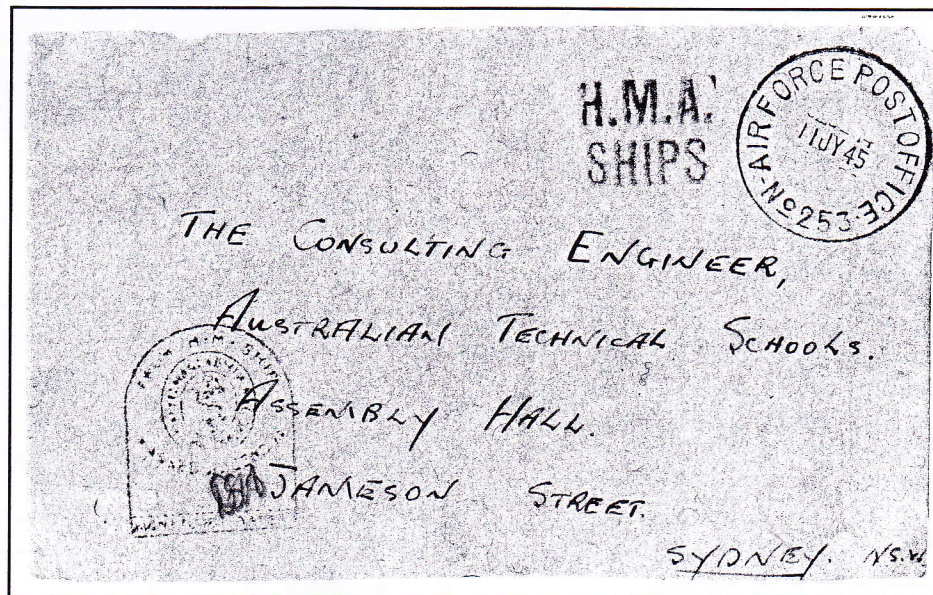 H.M.A.
SHIPS
AIR FORCE POST OFFICE
11 JY 45
No 253
THE CONSULTING ENGINEER,
AUSTRALIAN TECHNICAL SCHOOLS.
ASSEMBLY HALL.
JAMESON STREET.
SYDNEY. N.S.W.
FROM H.M. SHIP